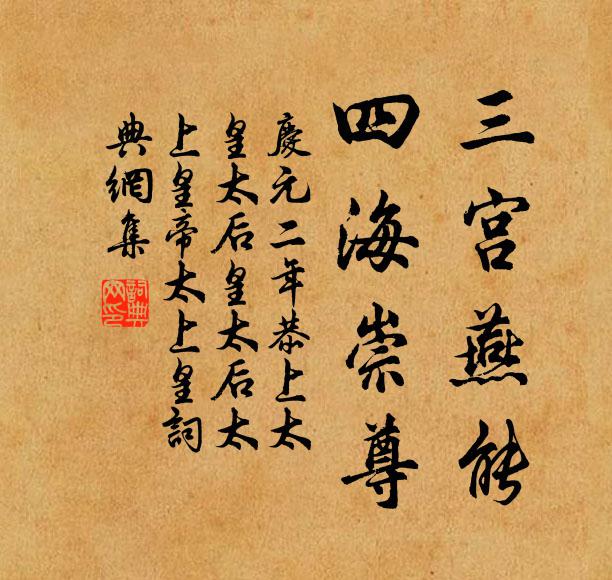 三宮燕能
四海崇尊
慶元二年恭上太
皇太后皇太后太
上皇帝太上皇詞
典網集
詞典
網印